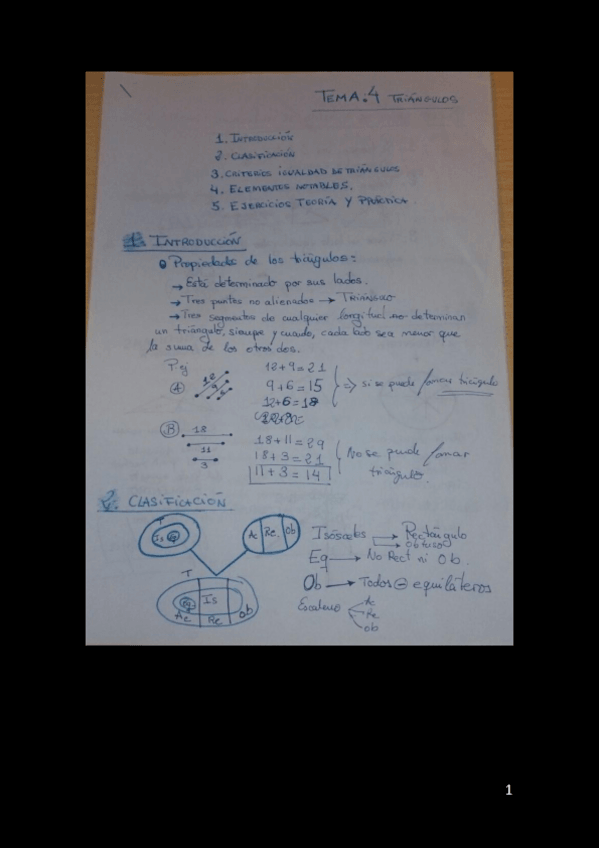 TEMA: 4 TRIÁNGULOS
1. INTRODUCCIÓN
2. CLASIFICACIÓN
3. CRITERIOS IGUALDAD DE TRIÁNGULOS
4. ELEMENTOS NOTABLES.
5. EJERCICIOS TEORÍA Y PRÁCTICA.
1. INTRODUCCIÓN
Propiedades de los triángulos:
→ Está determinado por sus lados.
→ Tres puntos no alienados → TRIÁNGULO
→ Tres segmentos de cualquier longitud no determinan
un triángulo, siempre y cuando, cada lado sea menor que
la suma de los otros dos.
P.ej
A
12
9
6
12+9=21
9+6=15
12+6=18
=> si se puede formar triángulo
B
18
11
3
18+11=29
18+3=21
11+3=14
No se puede formar
triángulo.
2. CLASIFICACIÓN
T
Is
Eq
Ac Re. Ob
T
Eq
Is
Ac Re Ob
Isósceles → Rectángulo
→ Obtuso
Eq → No Rect ni Ob.
Ob → Todos ⊖ equiláteros
Escaleno
Ac
Re
Ob
1